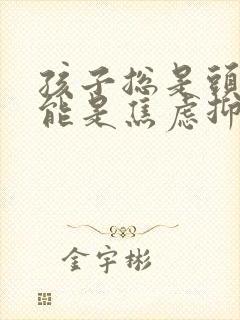 孩子总是頭
能是焦虑抑
金宇彬